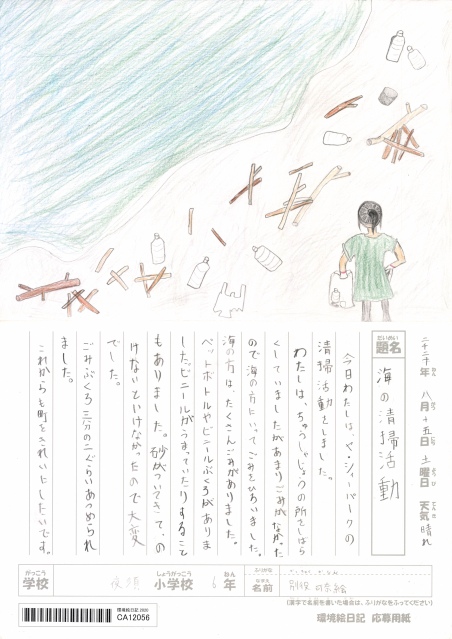 二〇二〇年 八月十五日 土曜日 天気 晴れ
題名 海の清掃活動
今日わたしは、ヤ・シィパークの
清掃活動をしました。
わたしは、ちゅうしゃじょうの所をしばら
くしていましたがあまりごみがなかった
ので海の方にいってごみをひろいました。
海の方は、たくさんごみがありました。
ペットボトルやビニールぶくろがありま
したビニールがうまっていたりすること
もありました。砂がついてきて、の
けないといけなかったので大変
でした。
ごみぶくろ三分の二ぐらいあつめられ
ました。
これからも町をきれいにしたいです。
学校 小学校 6年
ふりがな
名前
(漢字で名前を書いた場合は、ふりがなをふってください)
環境絵日記 2020
CA12056
環境絵日記 応募用紙